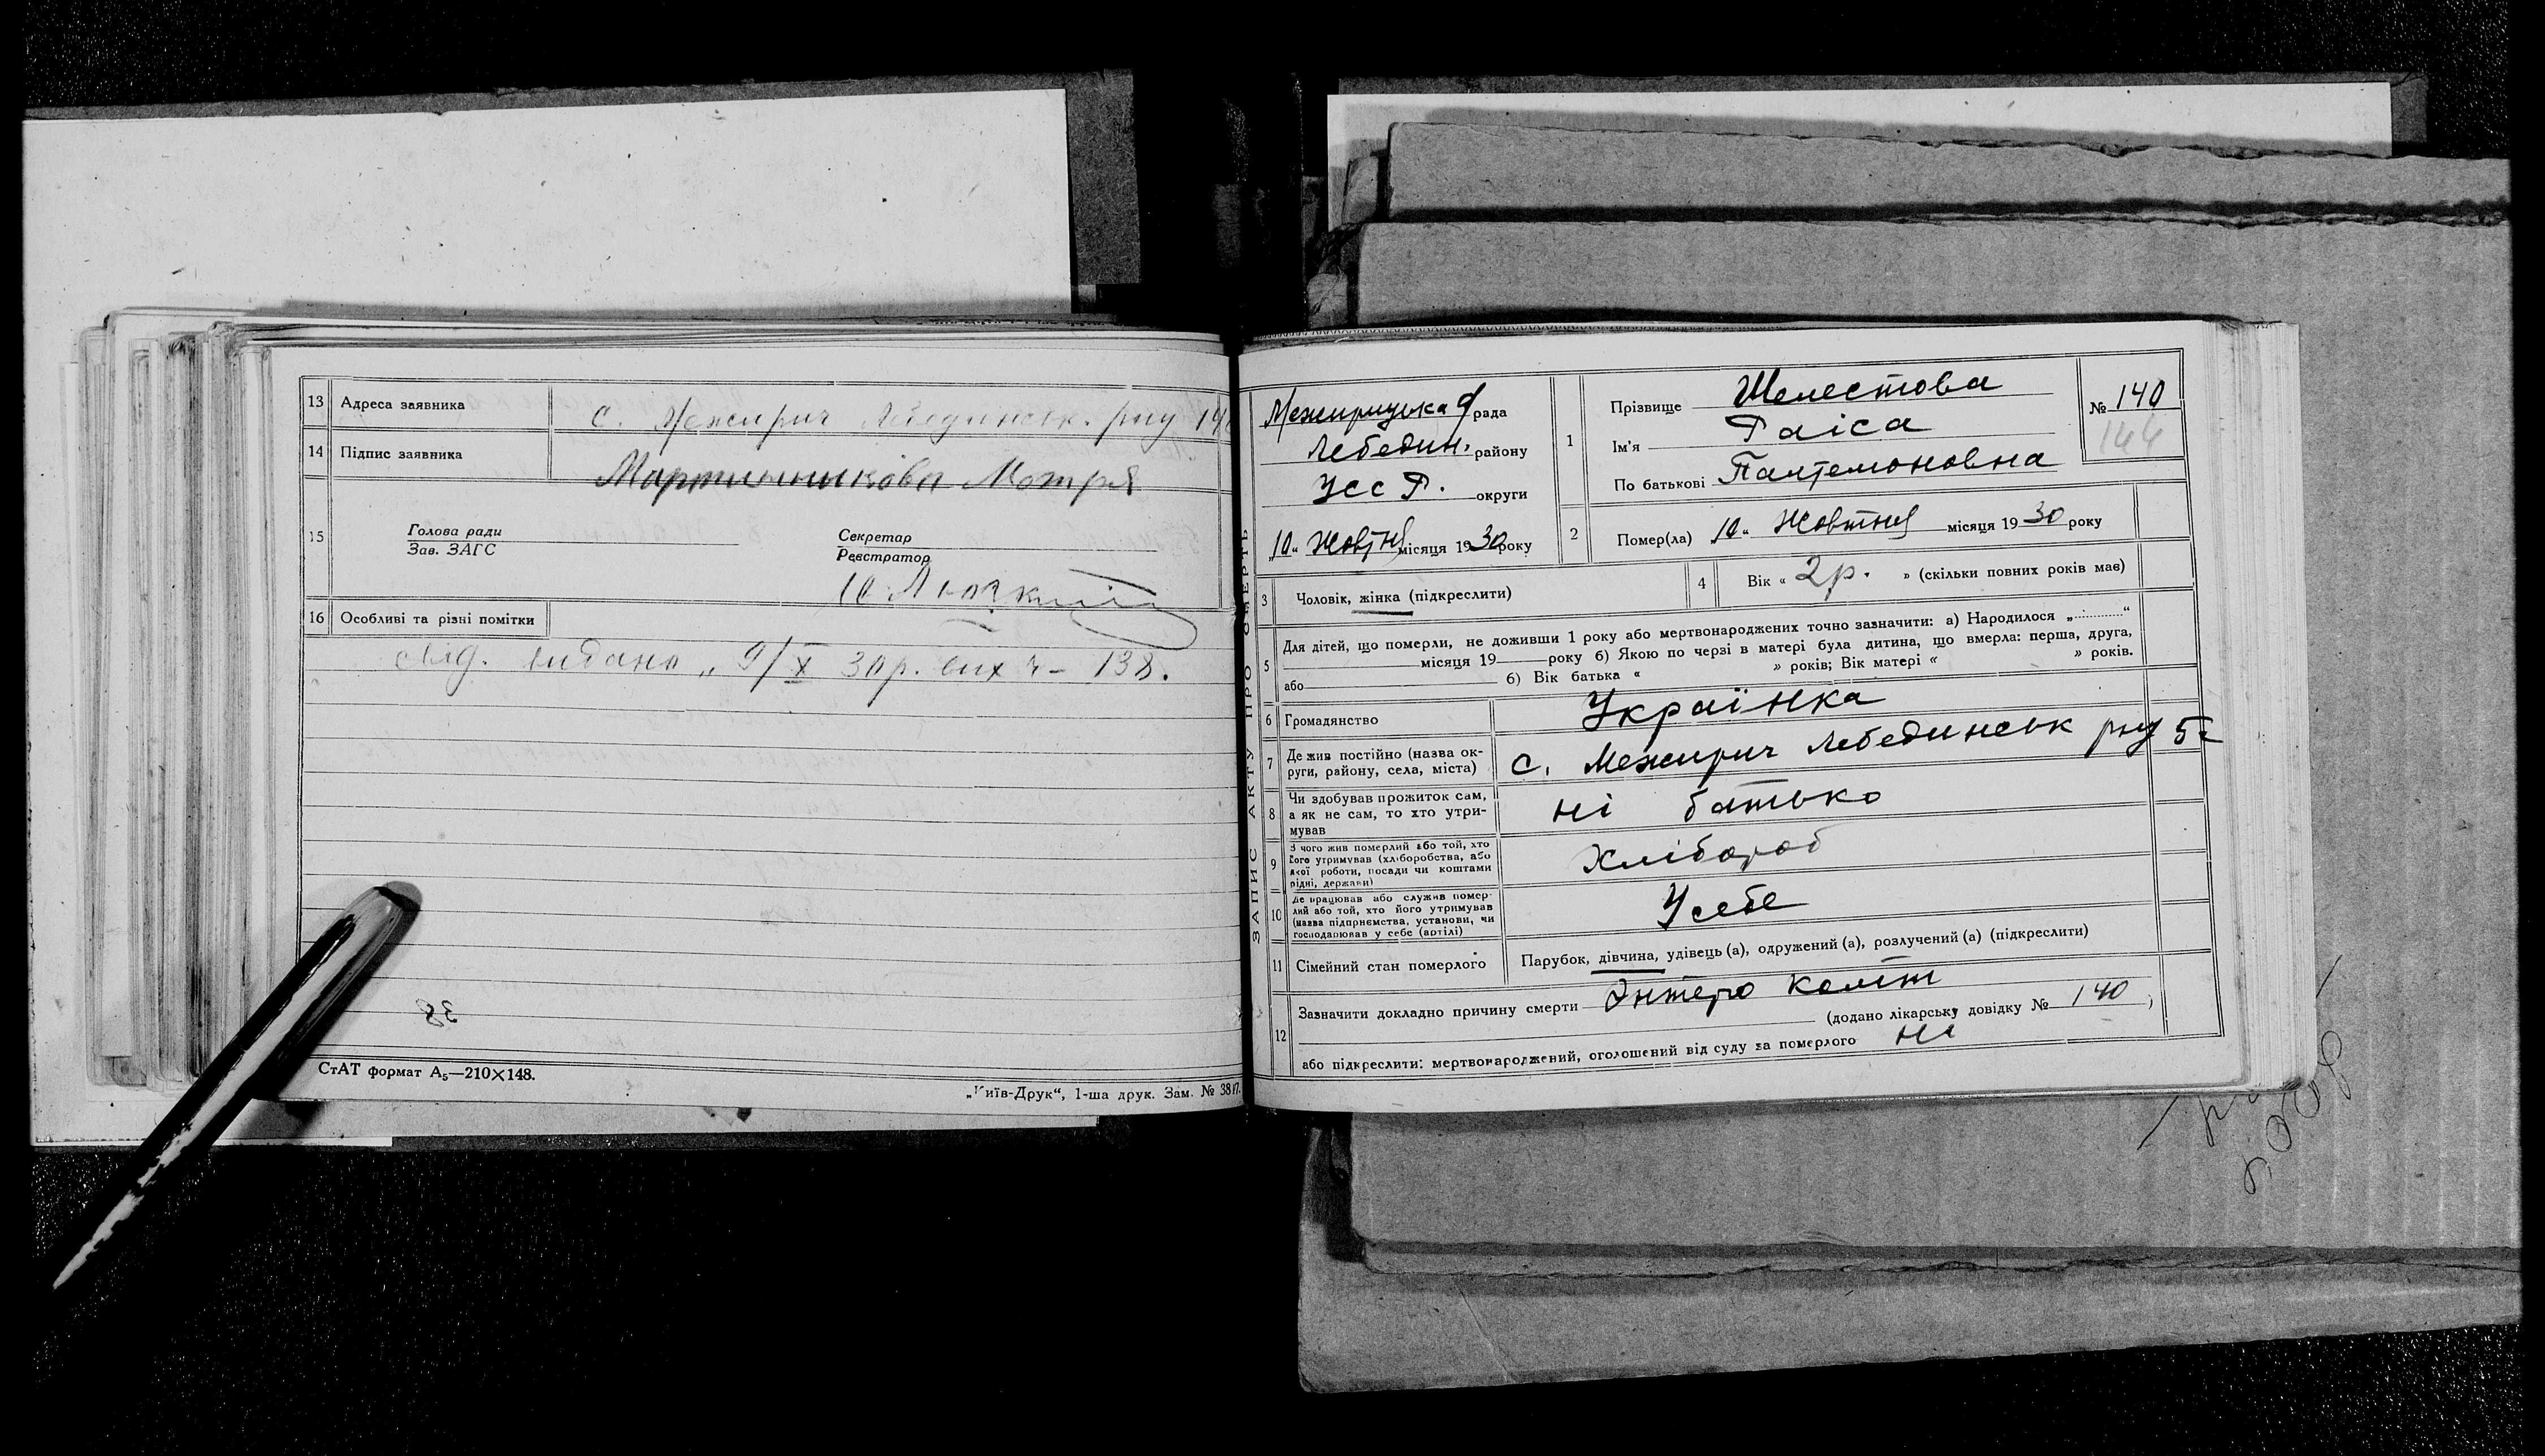 13 Адреса заявника с. Межирич Лебединськ. р-ну
14 Підпис заявника Мартинникова Мотря
15 Голова ради Секретар
Зав. ЗАГС Реєстратор
16 Особливі та різні помітки
видано „9/X 30 р. вих ч– 138.
38
СтАТ формат А5—210×148.
„Київ-Друк“, 1-ша друк. Зам. № 3817.
ЗАПИС АКТУ ПРО СМЕРТЬ
Межирицька рада
Лебедин. району
УССР. округи
„10„ Жовтня місяця 1930 року
1 Прізвище Шелестова
Ім'я Раіса
По батькові Пантемоновна
№ 140
144
2 Помер(ла) „10„ Жовтня місяця 1930 року
3 Чоловік, жінка (підкреслити)
4 Вік « 2 р. » (скільки повних років має)
5 Для дітей, що померли, не доживши 1 року або мертвонароджених точно зазначити: а) Народилося „ “
місяця 19 року б) Якою по черзі в матері була дитина, що вмерла: перша, друга,
або б) Вік батька « » років; Вік матері « » років.
6 Громадянство Українка
7 Де жив постійно (назва ок-
руги, району, села, міста) с. Межирич Лебединськ р-ну
8 Чи здобував прожиток сам,
а як не сам, то хто утри-
мував ні батько
9 З чого жив померлий або той, хто
його утримував (хліборобства, або
якої роботи, посади чи коштами
рідні, держави) Хлібороб
10 Де працював або служив помер-
лий або той, хто його утримував
(назва підприємства, установи, чи
господарював у себе (артілі) У себе
11 Сімейний стан померлого Парубок, дівчина, удівець (а), одружений (а), розлучений (а) (підкреслити)
12 Зазначити докладно причину смерти Энтеро коліт
(додано лікарську довідку № 140 )
або підкреслити: мертвонароджений, оголошений від суду за померлого ні